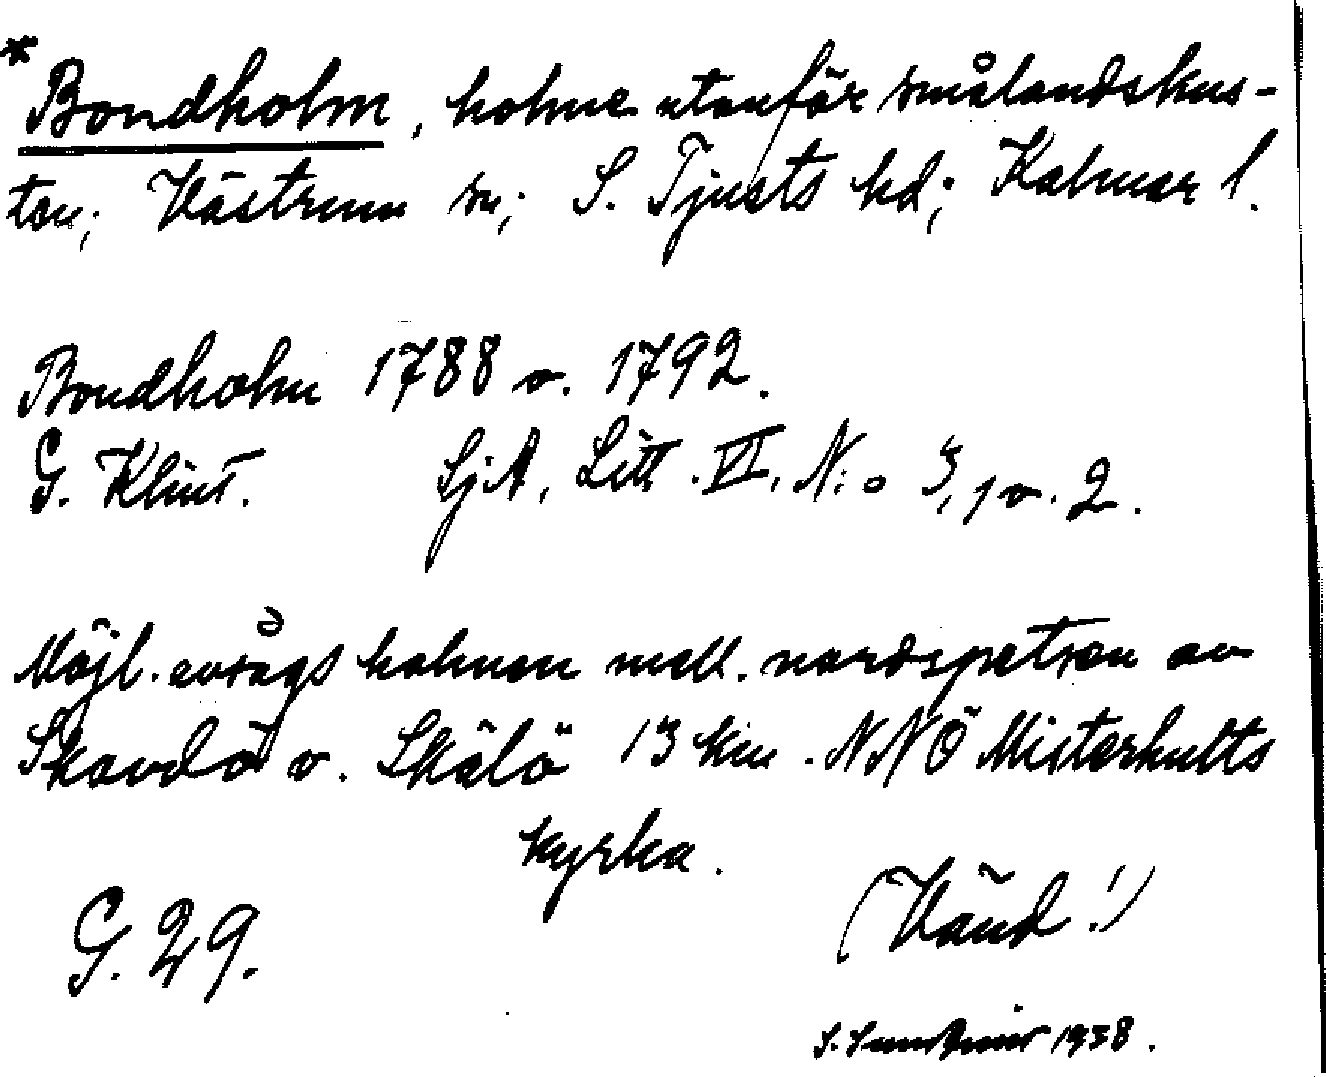 * Bondholm, holme utanför smålandskus-
ton; Västrum sn; S. Tjusts hd; Kalmar l.
Bondholm 1788 o. 1792.
G. Klint. SjA, Litt. VI, N:o 3, 1 o. 2.
Möjl. avsågs holmen mell. nordspetsen av
Skavdö o. Skälö 13 km. NNÖ Misterhults
kyrka.
G. 29. (Vänd!)
S. 1938.